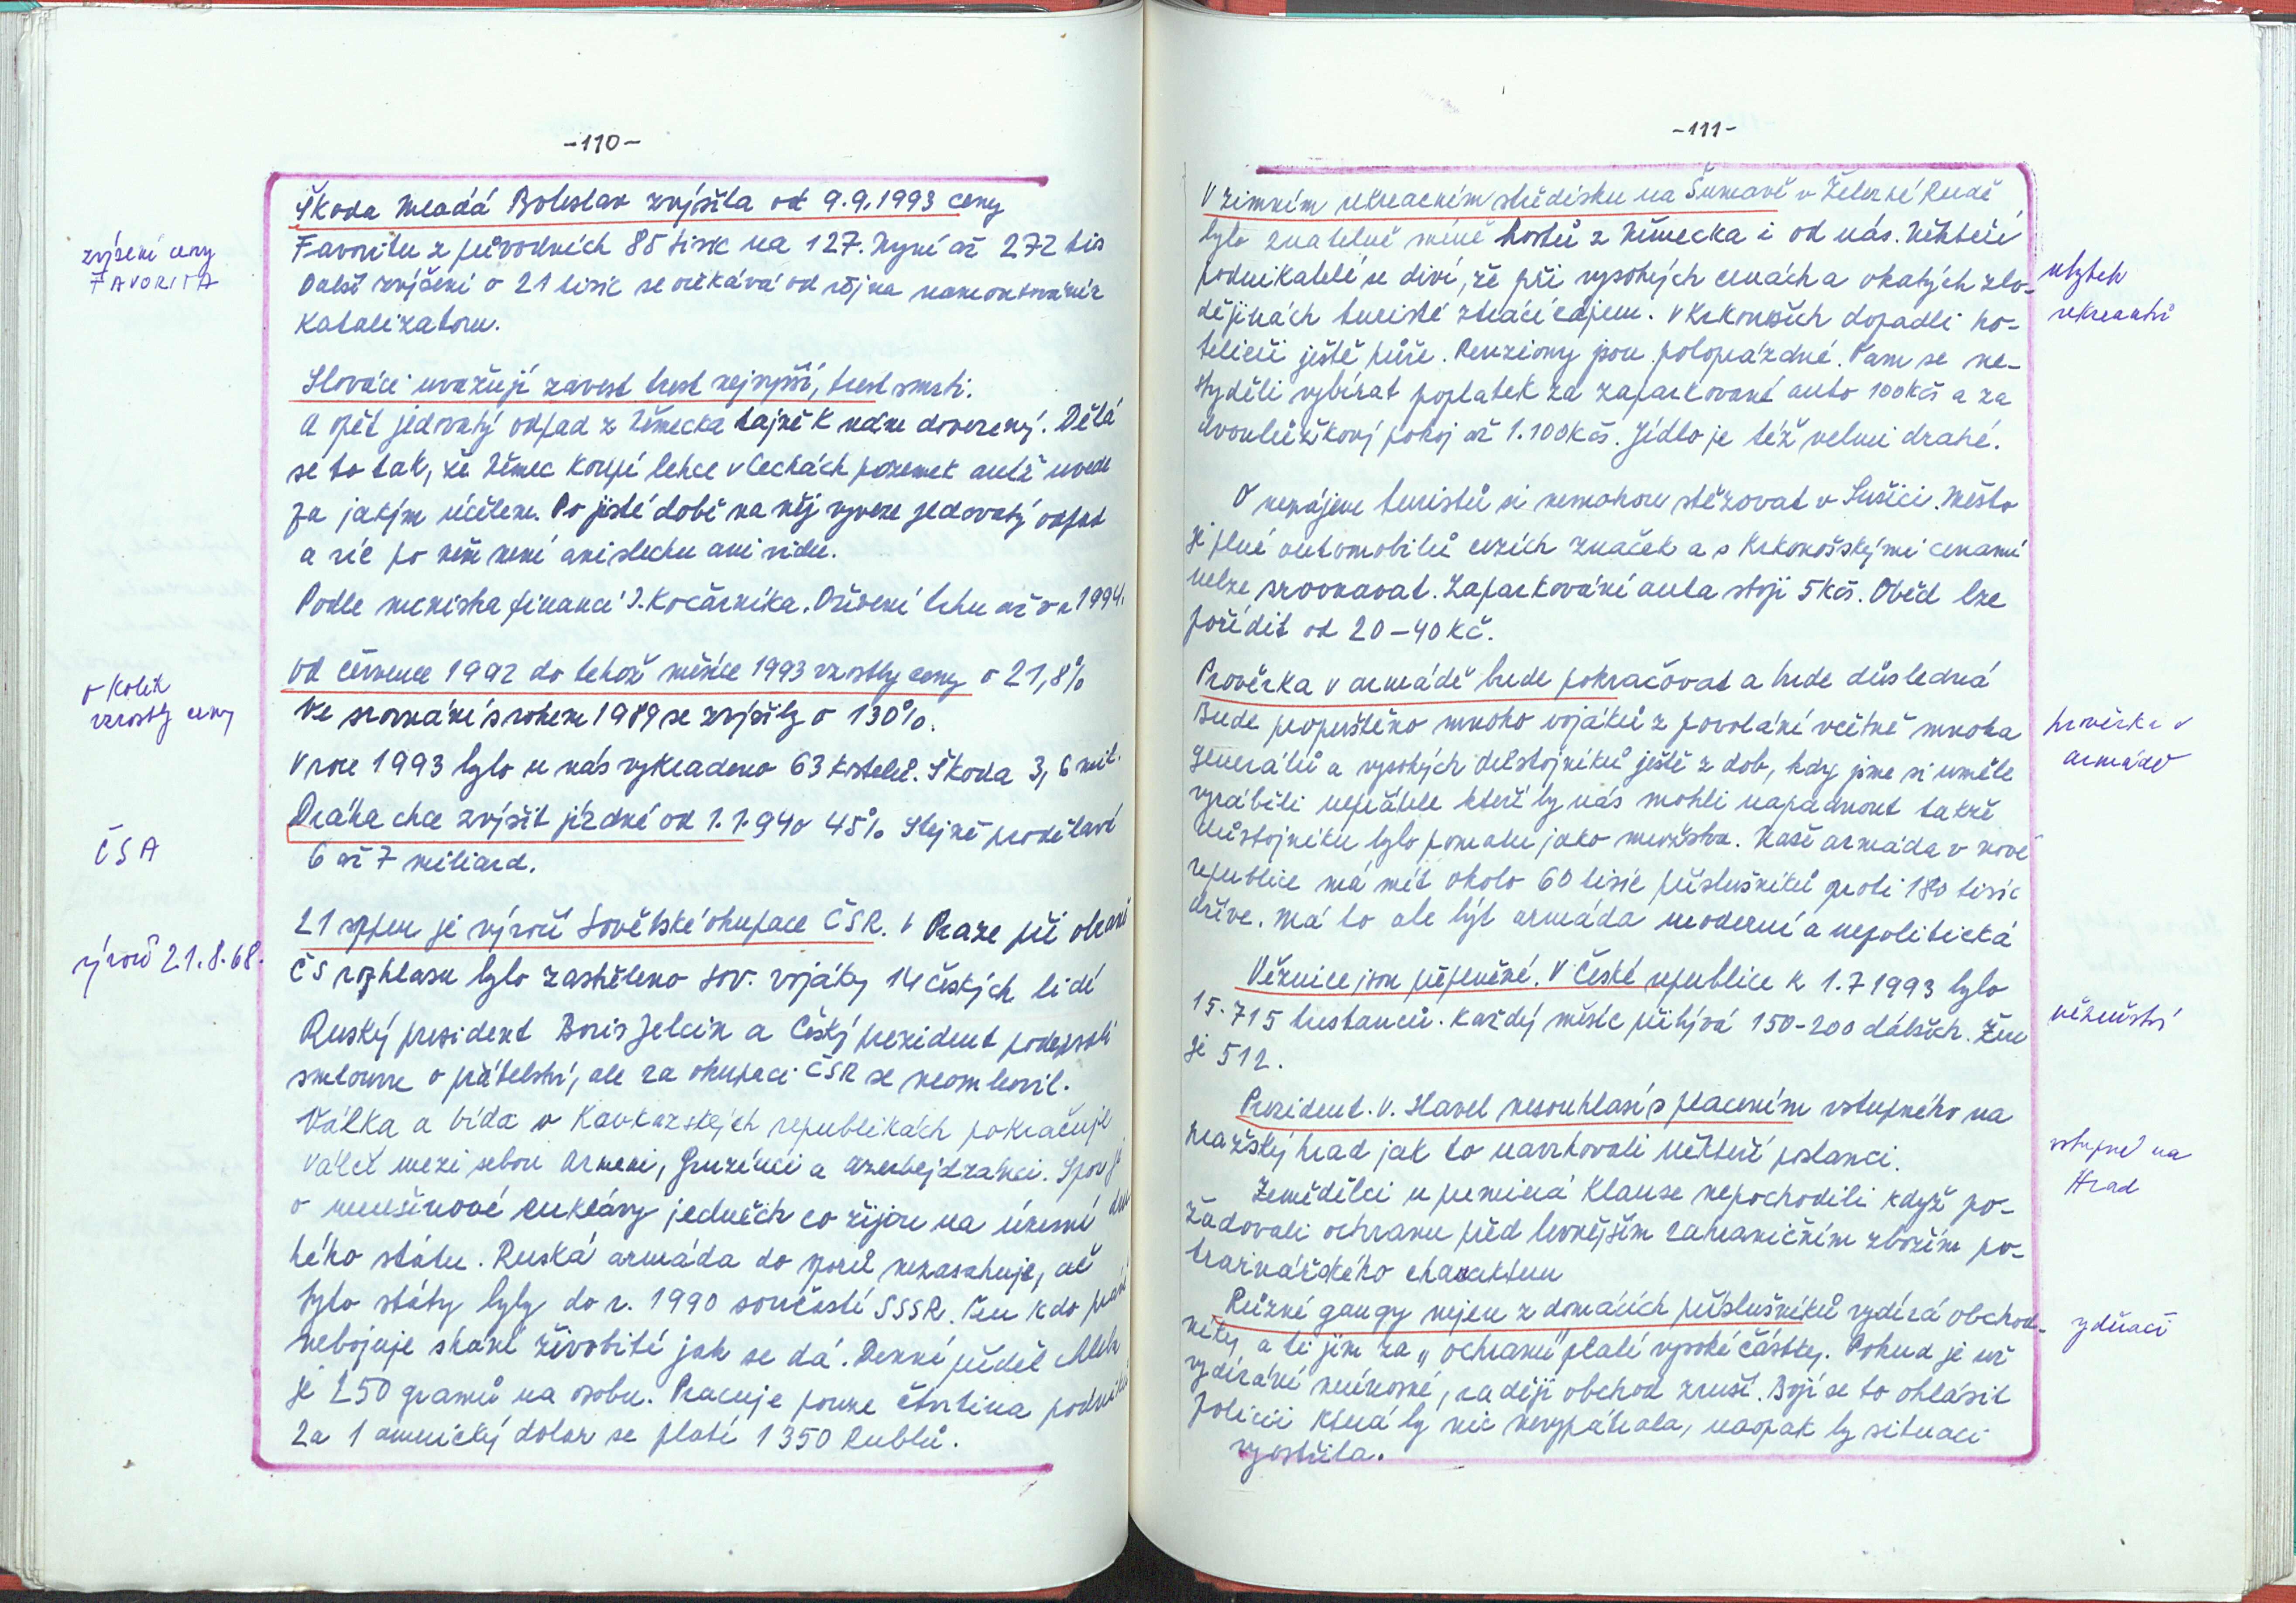 -110-
Škoda Mladá Boleslav zvýšila od 9.9.1993 ceny
zvýšení ceny
FAVORITA
Favoritu z původních 85 tisíc na 127. Nyní až 272 tis
Další zvýšení o 21 tisíc se očekává od října namontováním
Katalizatoru.
Slováci uvažují zavest trest nejvyšší, trest smrti.
A opět jedovatý odpad z Německa tajně k nám dovezený. Dělá
se to tak, že Němec koupí lehce v Čechách pozemek aniž uvede
za jakým účelem. Po jisté době na něj vyveze jedovatý odpad
a víc po něm není ani slechu ani vidu.
Podle ministra financí I. Kočárníka. Oživení trhu až v r 1994.
o kolik
vzrostly ceny
od července 1992 do tehož měsíce 1993 vzrostly ceny o 21,8%
Ve srovnání s rokem 1989 se zvýšily o 130%.
V roce 1993 bylo u nás vykradeno 63 kostelů. Škoda 3,6 mil.
ČSA
Dráha chce zvýšit jízdné od 1.1.94 o 45% Stejně prodělává
6 až 7 miliard.
výročí 21.8.68.
21 srpen je výročí Sovětské okupace ČSR. V Praze při obraně
ČS rozhlasu bylo zastřeleno sov. vojáky 14 českých lidí
Ruský president Boris Jelcin a Český prezident podepsali
smlouvu o přátelství, ale za okupaci ČSR se neomluvil.
Válka a bída v Kavkazských republikách pokračuje
Válčí mezi sebou Armeni, Gruzínci a Azerbejdzánci. Spor je
o menšinové enklávy jedněch co žijou na území dru
hého státu. Ruská armáda do sporů nezasahuje, ač
tyto státy byly do r. 1990 součástí SSSR. Ten kdo právě
nebojuje shání živobití jak se dá. Denní příděl chleba
je 250 gramů na osobu. Pracuje pouze čtvrtina podniků
Za 1 americký dolar se platí 1350 Rublů.
-111-
V zimním rekreačním středisku na Šumavě v Železné Rudě
bylo znatelně méně hostů z Německa i od nás. Někteří
úbytek
rekreantů
podnikatelé se diví, že při vysokých cenách a okatých zlo-
dějinách turisté ztrácí zájem. V Krkonoších dopadli ho-
teliéři ještě hůře. Penziony jsou poloprázdné. Tam se ne-
styděli vybírat poplatek za zaparkované auto 100Kčs a za
dvoulůžkový pokoj až 1.100Kčs. Jídlo je též velmi drahé.
O nezájmu turistů si nemohou stěžovat v Sušici. Město
je plné automobilů cizích značek a s Krkonošskými cenami
nelze srovnavat. Zaparkování auta stojí 5Kčs. Oběd lze
pořídit od 20-40 Kč.
Prověrka v armádě bude pokračovat a bude důsledná
prověrka v
armádě
Bude propuštěno mnoho vojáků z povolání včetně mnoha
generálů a vysokých důstojníků ještě z dob, kdy jsme si uměle
vyráběli nepřátele kteří by nás mohli napadnout takže
důstojníku bylo pomalu jako mužstva. Naše armáda v nové
republice má mít okolo 60 tisíc příslušníků proti 180 tisíc
dříve. Má to ale být armáda moderní a nepolitická
Věznice jsou přeplněné. V České republice k 1.7 1993 bylo
vězeňství
15.715 trestanců. Každý měsíc přibývá 150-200 dálších. Žen
je 512.
Prezident. V. Havel nesouhlasí s placením vstupného na
vstupné na
Hrad
pražský hrad jak to navrhovali někteří poslanci.
Zemědělci u premiéra Klause nepochodili když po-
žadovali ochranu před levnějším zahraničním zbožím po-
travinářského charakteru
Různé gangy nejen z domácích příslušníků vydírá obchod-
vyděrači
níky a ti jim za „ochranu" platí vysoké částky. Pokud je už
vydírání neúnosné, raději obchod zruší. Bojí se to ohlásit
Policii která by nic nevypátrala, naopak by situaci
vyostřila.